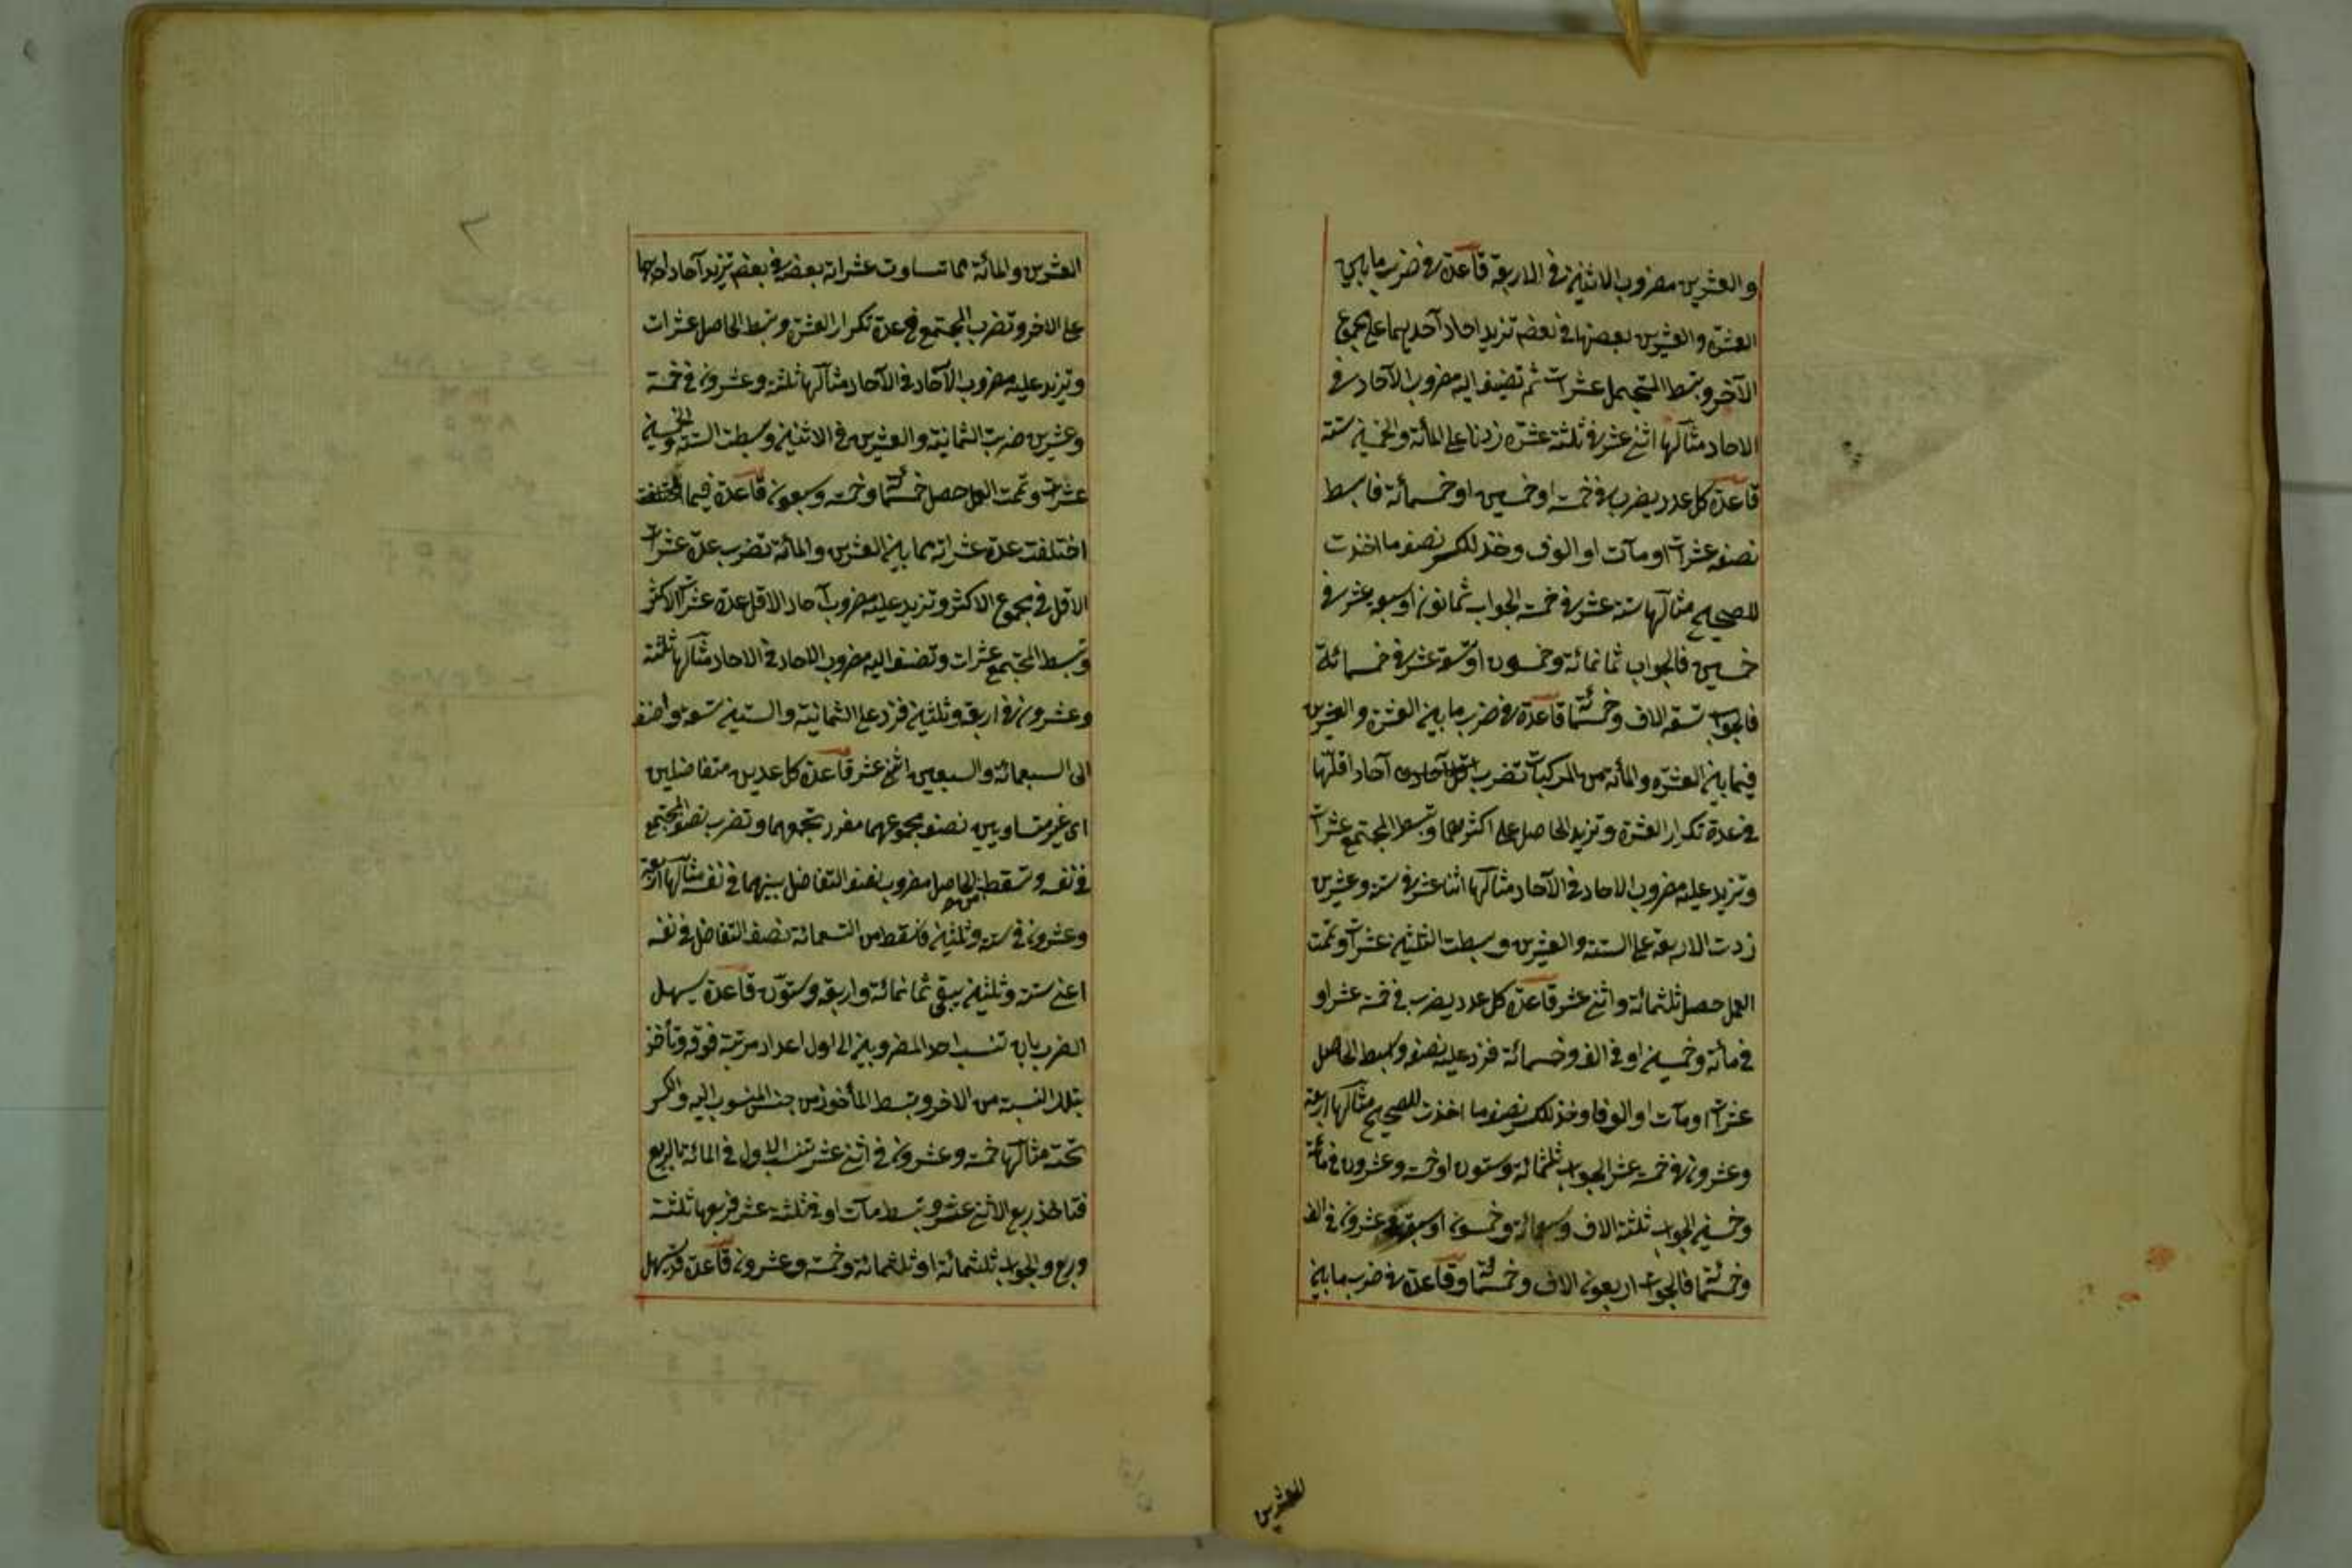 والعشرين مضروب الاثنين في الاربعة قاعدة في ضرب ما بين
العشرة والعشرين بعضها في بعض تزيد احاد احدهما على مجموع
الآخر وتبسط المجتمل عشرات ثم تضيف اليه مضروب الآحاد في
الاحاد مثالها اثنى عشر في ثلثة عشرة زدنا على المأة والخمسين ستة
قاعدة كل عدد يضرب في خمسة او خمسين او خمسمأئة فابسط
نصفه عشرات او مآت او الوف وخذ للكسر نصف ما اخذت
للصحيح مثالها ستة عشر في خمسة الجواب ثمانون او سبعة عشر في
خمسين فالجواب ثمانمائة وخمسون او تسعة عشر في خمسمائة
فالجواب تسعة الاف وخمسمائة قاعدة في ضرب ما بين العشرة والعشرين
فيما بين العشرة والمأئة من المركبات تضرب آحاد اقلها
في عدة تكرار العشرة وتزيد الحاصل على اكثرهما وتبسط المجتمع عشرات
وتزيد عليه مضروب الاحاد في الآحاد مثالها اثنا عشر في ستة وعشرين
زدت الاربعة على الستة والعشرين وبسطت الثلثين عشرات وتمت
العمل حصل ثلثمائة واثنى عشر قاعدة كل عدد يضرب في خمسة عشر او
في مأئة وخمسين او في الف وخمسمائة فزد عليه نصفه وابسط الحاصل
عشرات او مآت او الوفا وخذ للكسر نصف ما اخذت للصحيح مثالها اربعة
وعشرون في خمسة عشر الجواب ثلثمائة وستون او خمسة وعشرون في مأئة
وخمسين الجواب ثلثة الاف وسبعمائة وخمسون او سبعة وعشرون في الف
وخمسمائة فالجواب اربعون الاف وخمسمائة وقاعدة في ضرب ما بين
العشرين
العشرين والمائة مما تساوت عشراته بعضه في بعض تزيد آحاد احدهما
على الاخر وتضرب المجتمع في عدة تكرار العشرة وتبسط الحاصل عشرات
وتزيد عليه مضروب الآحاد في الآحاد مثالها ثلثة وعشرون في خمسة
وعشرين ضربت الثمانية والعشرين في الاثنين وبسطت الستة والخمسين
عشرات وتمت العمل حصل خمسمائة وخمسة وسبعون قاعدة فيما اختلفت
اختلفت عدة عشراته مما بين العشرين والمائة تضرب عدة عشرات
الاقل في مجموع الاكثر وتزيد عليه مضروب آحاد الاقل عدة عشرات الاكثر
وتبسط المجتمع عشرات وتضيف اليه مضروب الاحاد في الاحاد مثالها ثلثة
وعشرون في اربعة وثلثين فزد على الثمانية والستين تسعة واضف
الى السبعمائة والسبعين اثنى عشر قاعدة كل عددين متفاضلين
اى غير متساويين نصف مجموعهما مفرد تجمعهما وتضرب نصف المجتمع
في نفسه وتسقط من الحاصل مضروب نصف التفاضل بينهما في نفسه مثالها اربعة
وعشرون في ستة وثلثين فاسقط من التسعمائة نصف التفاضل في نفسه
اعنى ستة وثلثين يبقى ثمانمائة واربعة وستون قاعدة يسهل
الضرب بان تنسب احد المضروبين الى اول اعداد مرتبة فوقه وتأخذ
بتلك النسبة من الاخر وتبسط المأخوذ من جنس المنسوب اليه والكسر
تحته مثالها خمسة وعشرون في اثنى عشر تنسب الاول في المائة بالربع
فتاخذ ربع الاثنى عشر وتبسط مآت او في ثلثة عشر فربعها ثلثة
وربع والجواب ثلثمائة او ثلثمائة وخمسة وعشرون قاعدة قد يسهل